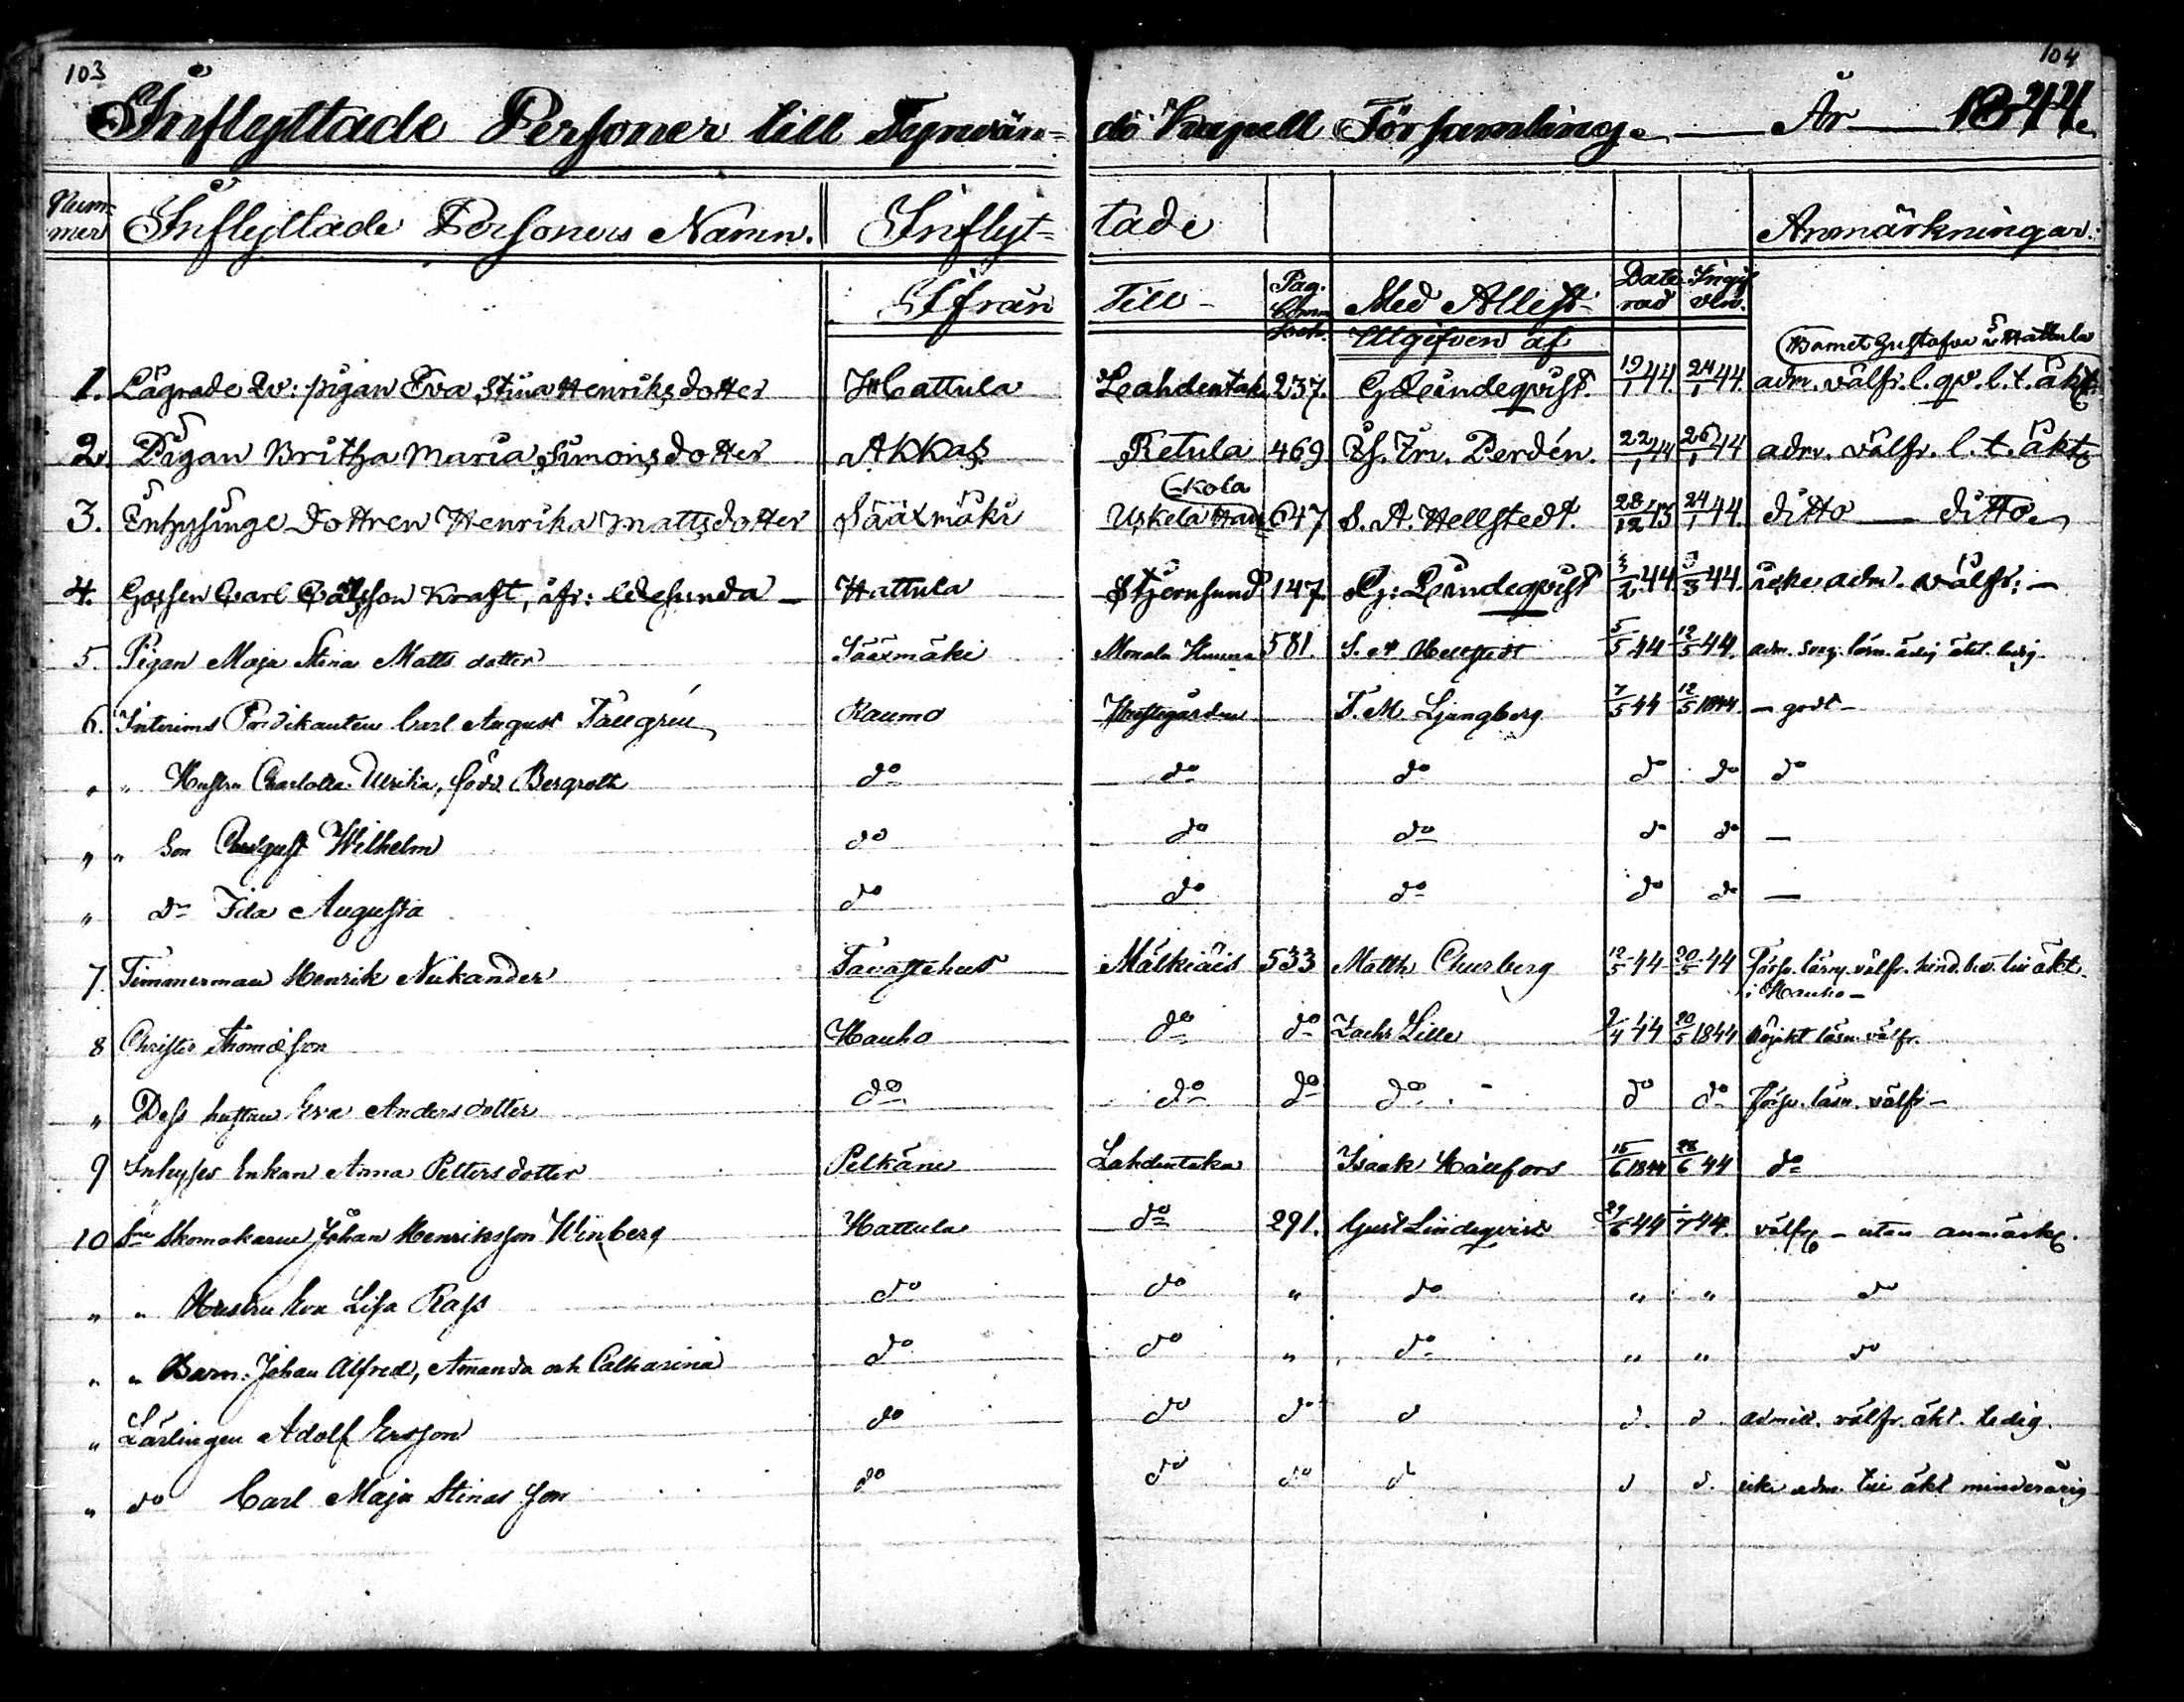 103
104
Inflyttade Personer till Tyrvän=
dö Kapell Församling. — År — 1844.
Num=
mer
Inflyttade Personers Namn.
Inflyt=
tade
Anmärkningar.
Ifrån
Till
Pag.
Med Attest
Utgifven af
Date
rad
Ingif
ven.
Barnet Gustafva i Hattula
1. Lägrade Qv: pigan Eva Stina Henriksdotter Hattula Lahdentaka 237. G Lindeqvist. 19/1 44. 24/1 44. adm. välfr. l. qv. l. t. äkt.
2. Pigan Britha Maria Simonsdotter Akkas Retula 469 Perdén. 22/1 44 26/1 44 adm. välfr. l. t. äkt
kola
3. Inhysinge Dottren Henrika Mattsdotter Sääxmäki Uskela 647 S. A. Hellstedt. 28/12 43 24/1 44. ditto — ditto
4. Gossen Carl Carlsson Kraft, ifr: Hattula Stjernsund 147. G: Lindeqvist 3/2 44 3/3 44. icke adm. välfr: —
5. Pigan Maja Stina Matts dotter Sääxmäki 581. S. A Hellstedt 5/5 44 12/5 44. adm. ledig.
6. Interims Predikanten Carl August Tallgrén Raumo Prestegården T. M. Ljungberg 7/5 44 12/5 1844. — godt —
" " Hustru Charlotta Ulrika, född Bergroth do do do do do do
" " Son August Wilhelm do do do do do —
" do Ida Augusta do do do do do —
7. Timmerman Henrik Nukander Tavastehus Mälkiäis 533 Matth Churberg 12/5 44 20/5 44 försv. läsn. välfr. hind. lös till äkt.
i Hauho —
8 Christer Thomasson Hauho do do Zachr Lille 9/4 44 20/5 1844 läsn. välfr.
" Dess hustru Eva Andersdotter do do do do do do försv. läsn. välfr —
9 Inhyses Enkan Anna Petters dotter Pelkäne Lahdentaka Isaak Hällfors 15/6 1844 28/6 44 do
10 Skomakaren Johan Henriksson Winberg Hattula do 291. Gust Lindeqvist 29/6 44 1/7 44. välfr — utan anmärk.
" " Hustru Eva Lisa Rass do do " do " " do
" " Barn: Johan Alfred, Amanda och Catharina do do " do " " do
" Lärlingen Adolf Ersson do do do d d. d. admitt. välfr. äkt. ledig.
" do Carl Maja Stinas son do do do d d d. icke adm. till äkt minderårig